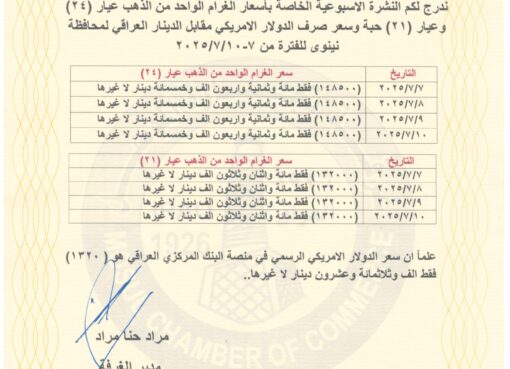 ندرج لكم النشرة الاسبوعية الخاصة بأسعار الغرام الواحد من الذهب عيار (٢٤)
وعيار (٢١) حبة وسعر صرف الدولار الامريكي مقابل الدينار العراقي لمحافظة
نينوى للفترة من ٧-٢٠٢٥/٧/١٠
التاريخ سعر الغرام الواحد من الذهب عيار (٢٤)
٢٠٢٥/٧/٧ (١٤٨٥٠٠) فقط مائة وثمانية واربعون الف وخمسمائة دينار لا غيرها
٢٠٢٥/٧/٨ (١٤٨٥٠٠) فقط مائة وثمانية واربعون الف وخمسمائة دينار لا غيرها
٢٠٢٥/٧/٩ (١٤٨٥٠٠) فقط مائة وثمانية واربعون الف وخمسمائة دينار لا غيرها
٢٠٢٥/٧/١٠ (١٤٨٥٠٠) فقط مائة وثمانية واربعون الف وخمسمائة دينار لا غيرها
التاريخ سعر الغرام الواحد من الذهب عيار (٢١)
٢٠٢٥/٧/٧ (١٣٢٠٠٠) فقط مائة واثنان وثلاثون الف دينار لا غيرها
٢٠٢٥/٧/٨ (١٣٢٠٠٠) فقط مائة واثنان وثلاثون الف دينار لا غيرها
٢٠٢٥/٧/٩ (١٣٢٠٠٠) فقط مائة واثنان وثلاثون الف دينار لا غيرها
٢٠٢٥/٧/١٠ (١٣٢٠٠٠) فقط مائة واثنان وثلاثون الف دينار لا غيرها
1926
علماً ان سعر الدولار الامريكي الرسمي في منصة البنك المركزي العراقي هو (١٣٢٠)
فقط الف وثلاثمائة وعشرون دينار لا غيرها..
CHAMBER OF COMME
مراد حنا مراد
مدير الغرفة